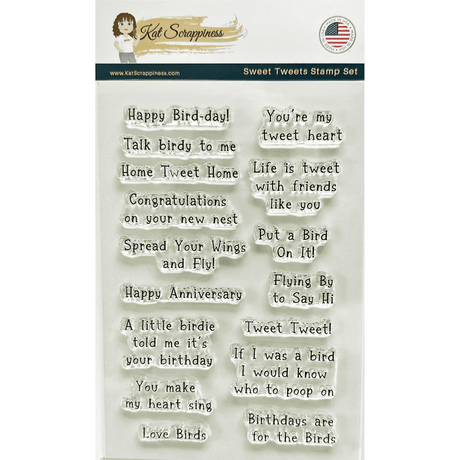 Kat Scrappiness
www.KatScrappiness.com
Sweet Tweets Stamp Set
Happy Bird-day!
Talk birdy to me
Home Tweet Home
Congratulations
on your new nest
Spread Your Wings
and Fly!
Happy Anniversary
A little birdie
told me it's
your birthday
You make
my heart sing
Love Birds
You're my
tweet heart
Life is tweet
with friends
like you
Put a Bird
On It!
Flying By
to Say Hi
Tweet Tweet!
If I was a bird
I would know
who to poop on
Birthdays are
for the Birds